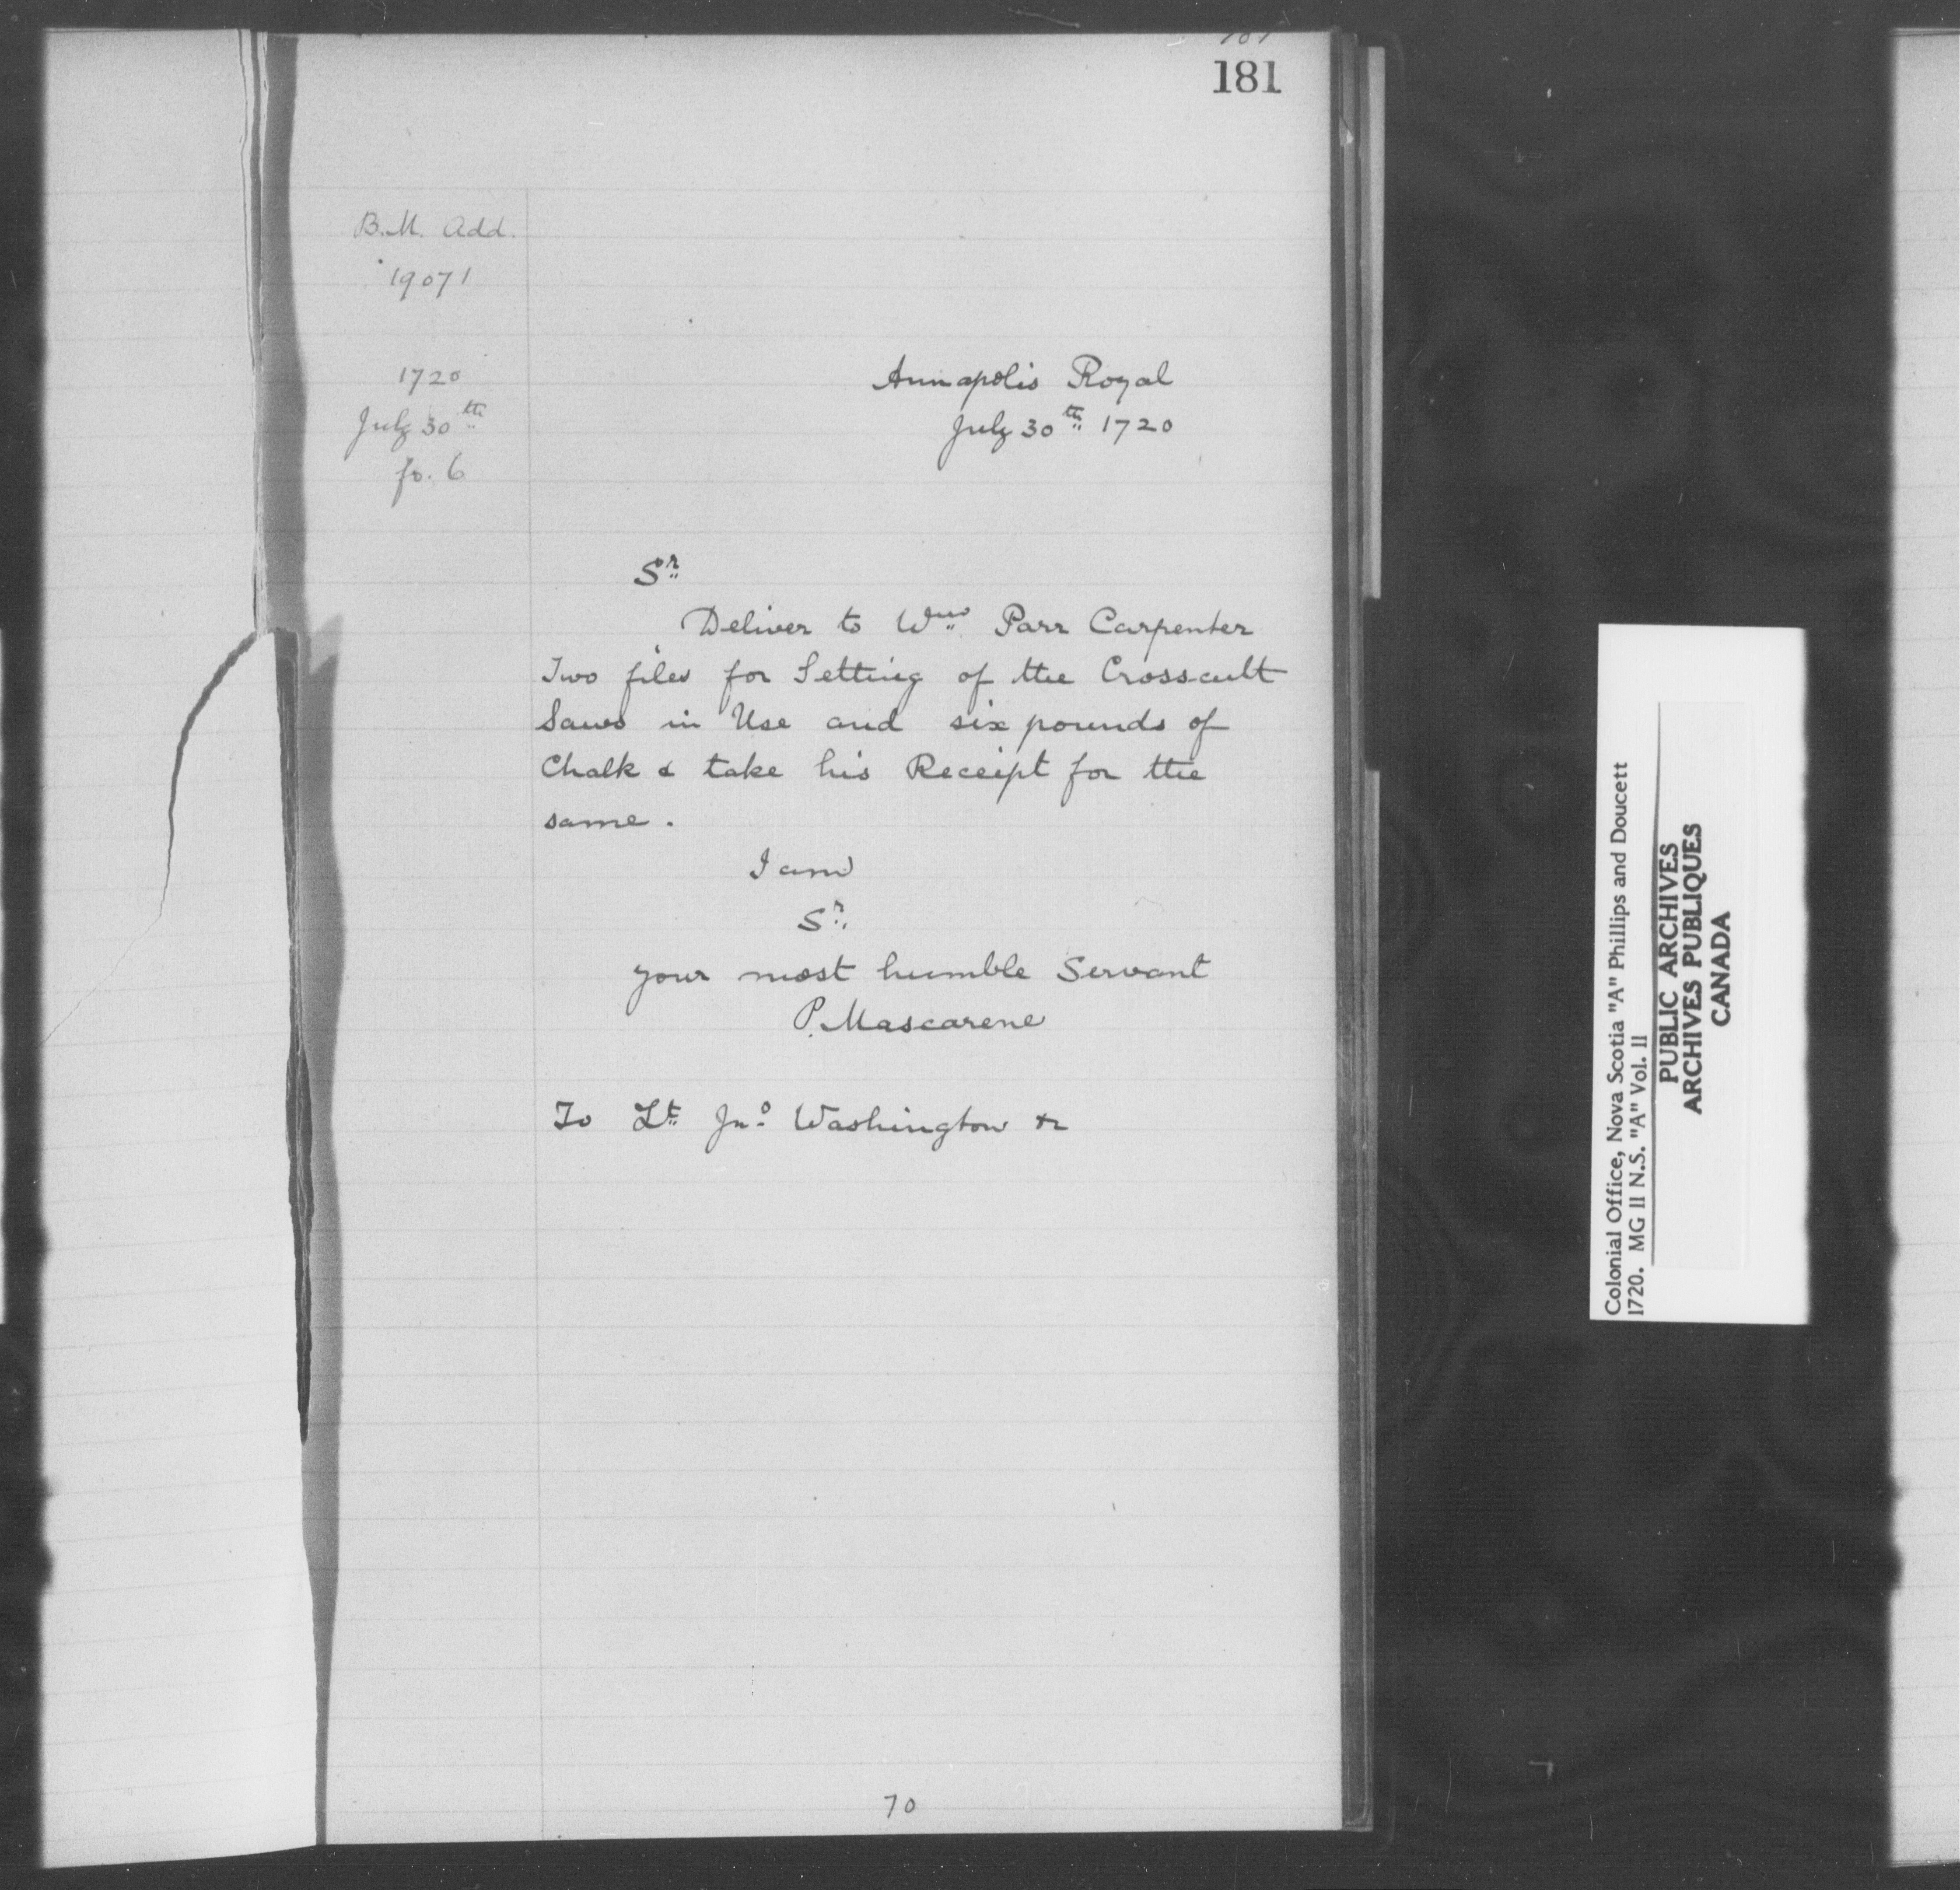 181
B.M. Add.
19071
1720
July 30th
fo. 6
Annapolis Royal
July 30th 1720
Sr
Deliver to Wm Parr Carpenter
Two files for Setting of the Crosscult
Saws in Use and six pounds of
Chalk & take his Receipt for the
same.
I am
Sr
your most humble Servant
P. Mascarene
To Lt Jno Washington &c
70
Colonial Office, Nova Scotia "A" Phillips and Doucett
1720. MG 11 N.S. "A" Vol. 11
PUBLIC ARCHIVES
ARCHIVES PUBLIQUES
CANADA